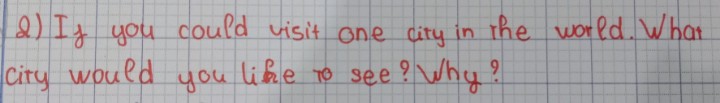 2) If you could visit one city in the world. What
city would you like to see? Why?